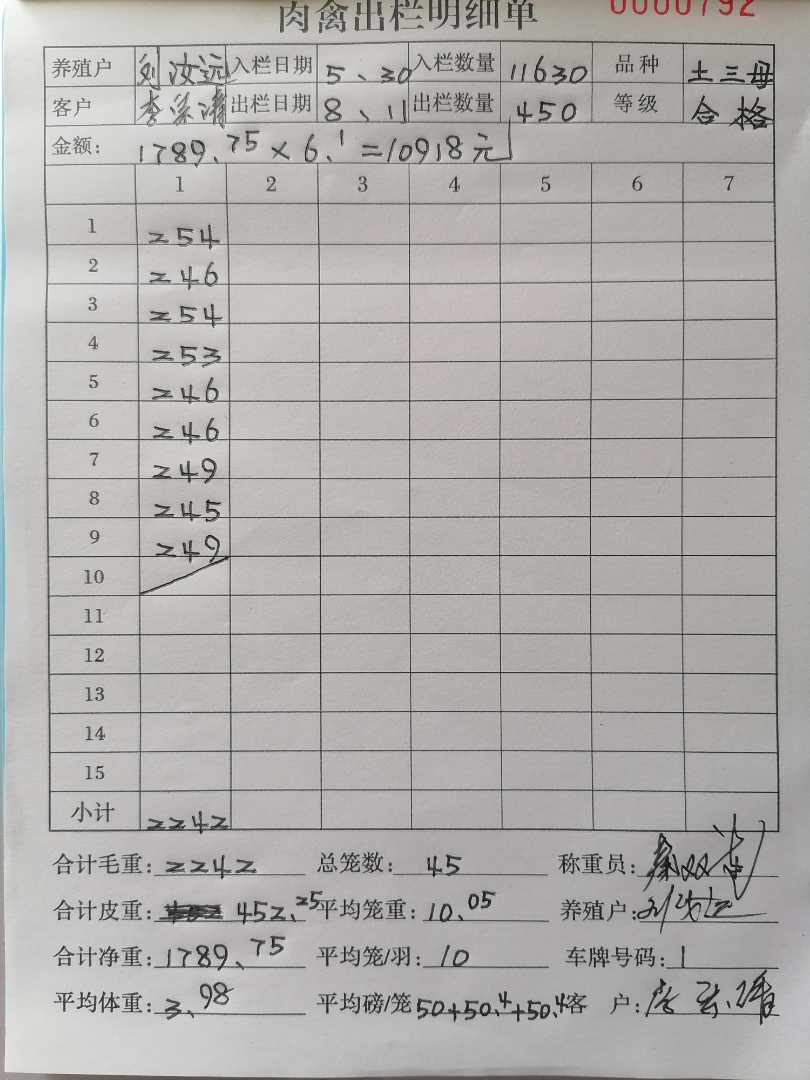 肉禽出栏明细单 0000792
养殖户 刘汝远 入栏日期 5、30 入栏数量 11630 品种 土三母
客户 李 出栏日期 8、11 出栏数量 450 等级 合格
金额: 1789.75×6.1=10918元
1 2 3 4 5 6 7
1 254
2 246
3 254
4 253
5 246
6 246
7 249
8 245
9 249
10
11
12
13
14
15
小计 2242
合计毛重: 2242 总笼数: 45 称重员:
合计皮重: 452.25 平均笼重: 10.05 养殖户:
合计净重: 1789.75 平均笼/羽: 10 车牌号码: 1
平均体重: 3.98 平均磅/笼 50+50.4+50.4 客 户: